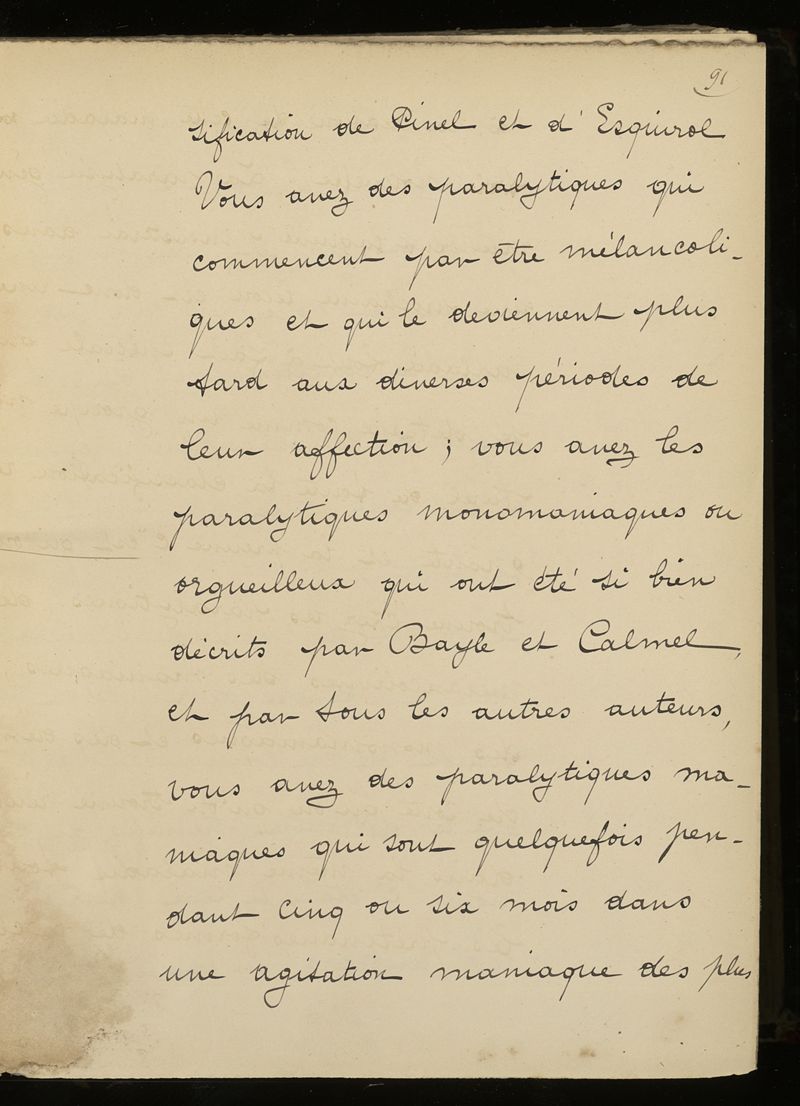 91
sification de Pinel et d'Esquirol
Vous avez des paralytiques qui
commencent par être mélancoli-
ques et qui le deviennent plus
tard aux diverses périodes de
leur affection ; vous avez les
paralytiques monomaniaques ou
orgueilleux qui ont été si bien
décrits par Bayle et Calmel,
et par tous les autres auteurs,
vous avez des paralytiques ma-
niaques qui sont quelquefois pen-
dant cinq ou six mois dans
une agitation maniaque des plus